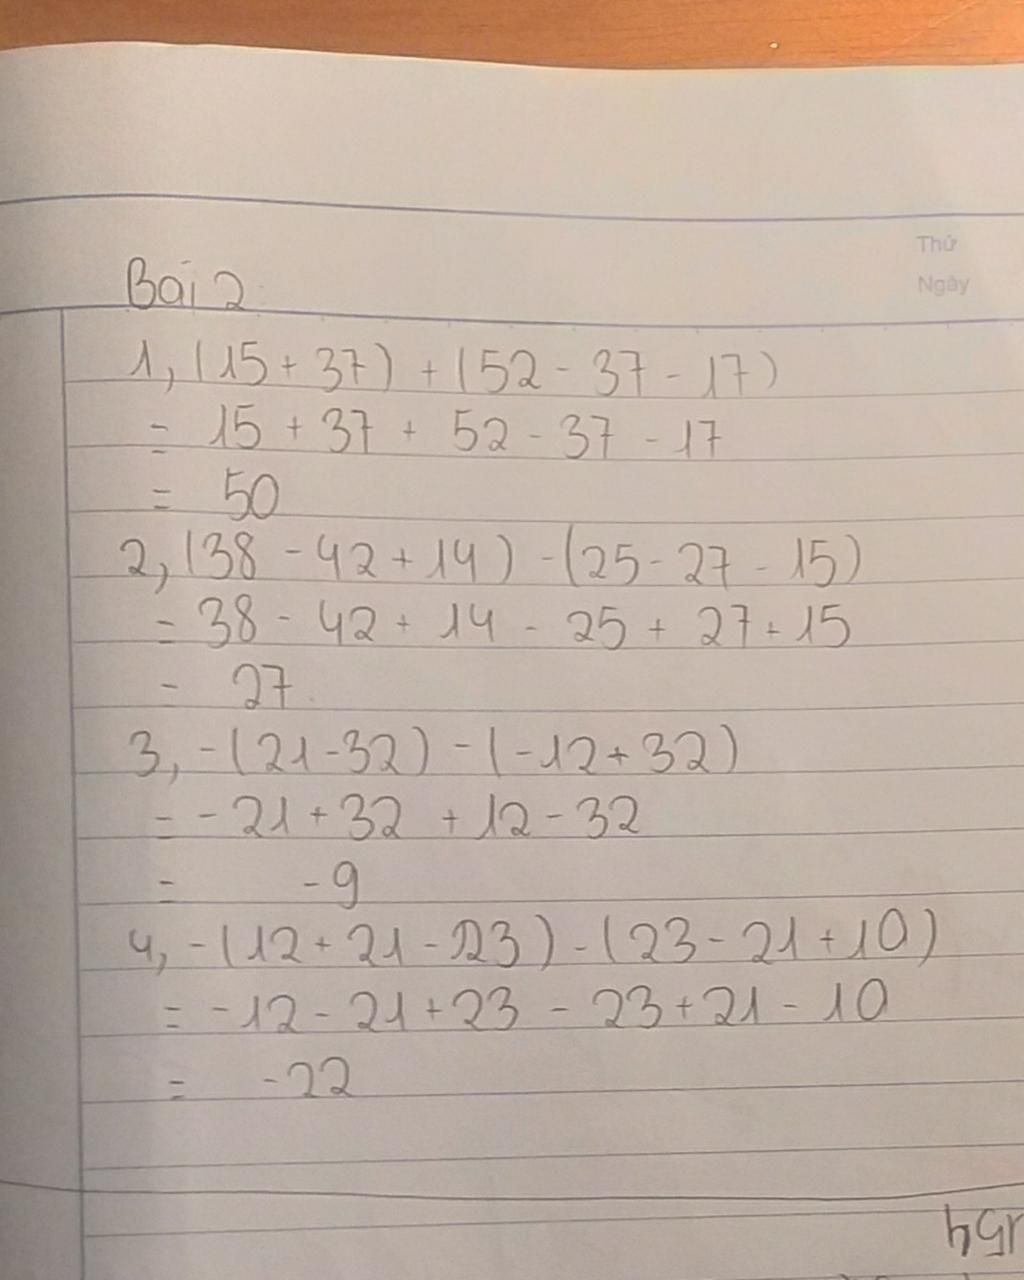 Thứ
Ngày
Bài 2
1, (15 + 37) + (52 - 37 - 17)
= 15 + 37 + 52 - 37 - 17
= 50
2, (38 - 42 + 14) - (25 - 27 - 15)
= 38 - 42 + 14 - 25 + 27 + 15
= 27
3, -(21-32) - (-12+32)
= -21 + 32 + 12 - 32
= -9
4, -(12 + 21 - 23) - (23 - 21 + 10)
= -12 - 21 + 23 - 23 + 21 - 10
= -22